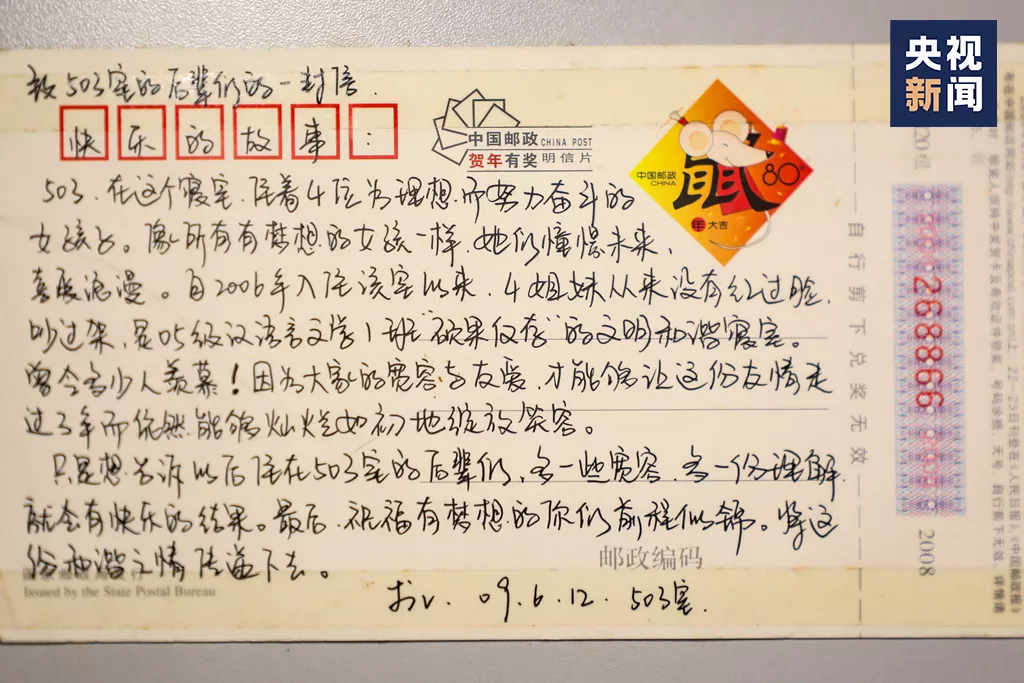 央视
新闻
致503室的后辈们的一封信.
快乐的故事：
中国邮政 CHINA POST
贺年有奖 明信片
中国邮政
CHINA
鼠
80
年 大吉
503.在这个寝室.住着4位为理想而努力奋斗的
女孩子。像所有有梦想的女孩一样,她们憧憬未来,
喜爱浪漫。自2006年入住该室以来.4姐妹从来没有红过脸.
吵过架,是05级汉语言文学1班"硕果仅存"的文明和谐寝室。
曾令多少人羡慕！因为大家的宽容与友爱.才能够让这份友情走
过3年而依然能够灿烂如初地绽放笑容。
只是想告诉以后住在503室的后辈们,多一些宽容.多一份理解.
就会有快乐的结果。最后.祝福有梦想的你们前程似锦。将这
份和谐之情传递下去。
邮政编码
Issued by the State Postal Bureau
09.6.12. 503室.
自行剪下兑奖无效
268866
2008